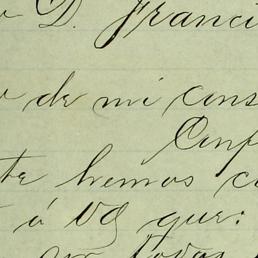 D. Franci
de mi cons
Conf
te hemos c
á Vd que:
en todos